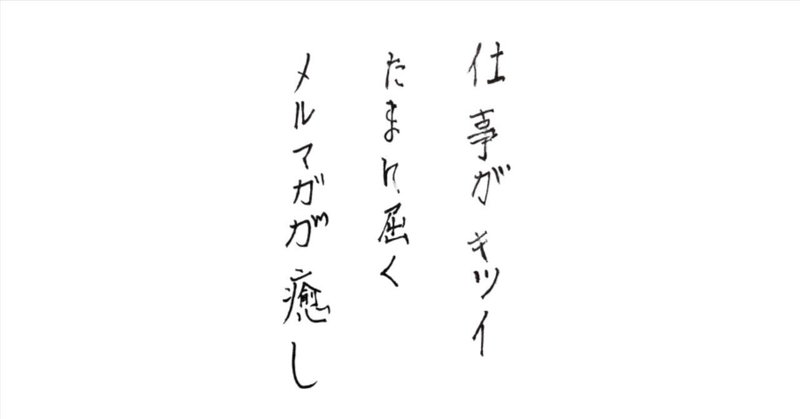 仕事がキツイ
たまに屈く
メルマガが癒し